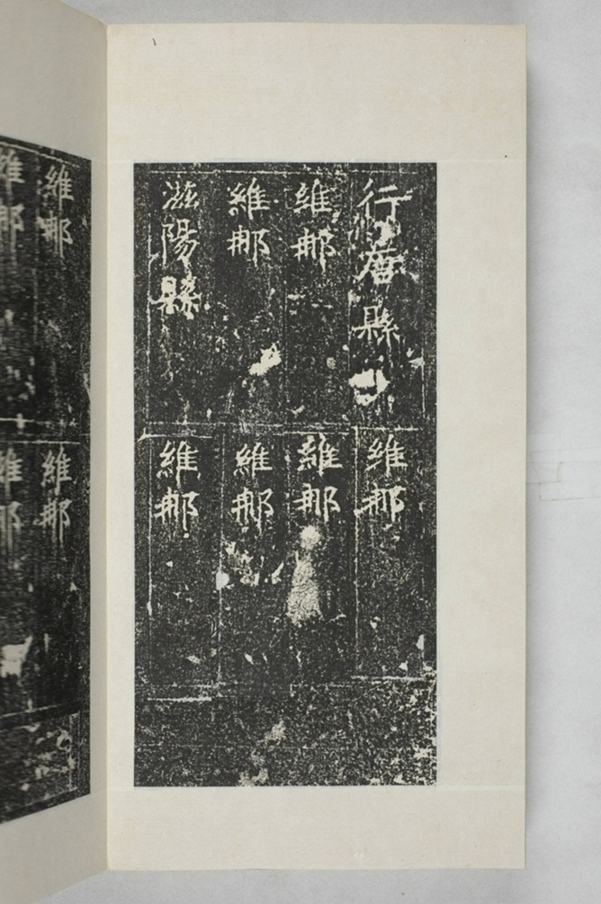 行唐縣
維那
維那
滋陽縣
維那
維那
維那
維那
維那
維那
維那
維那